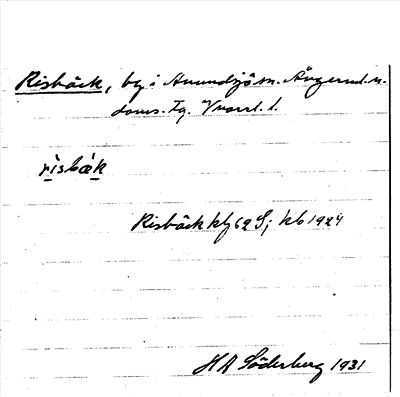 Risbäck, by i Anundsjö sn. Ångerml. n.
doms. tg. Vnorrl. l.
risbäk
Risbäck kbg 62 S; kb 1924
HA Söderberg 1931